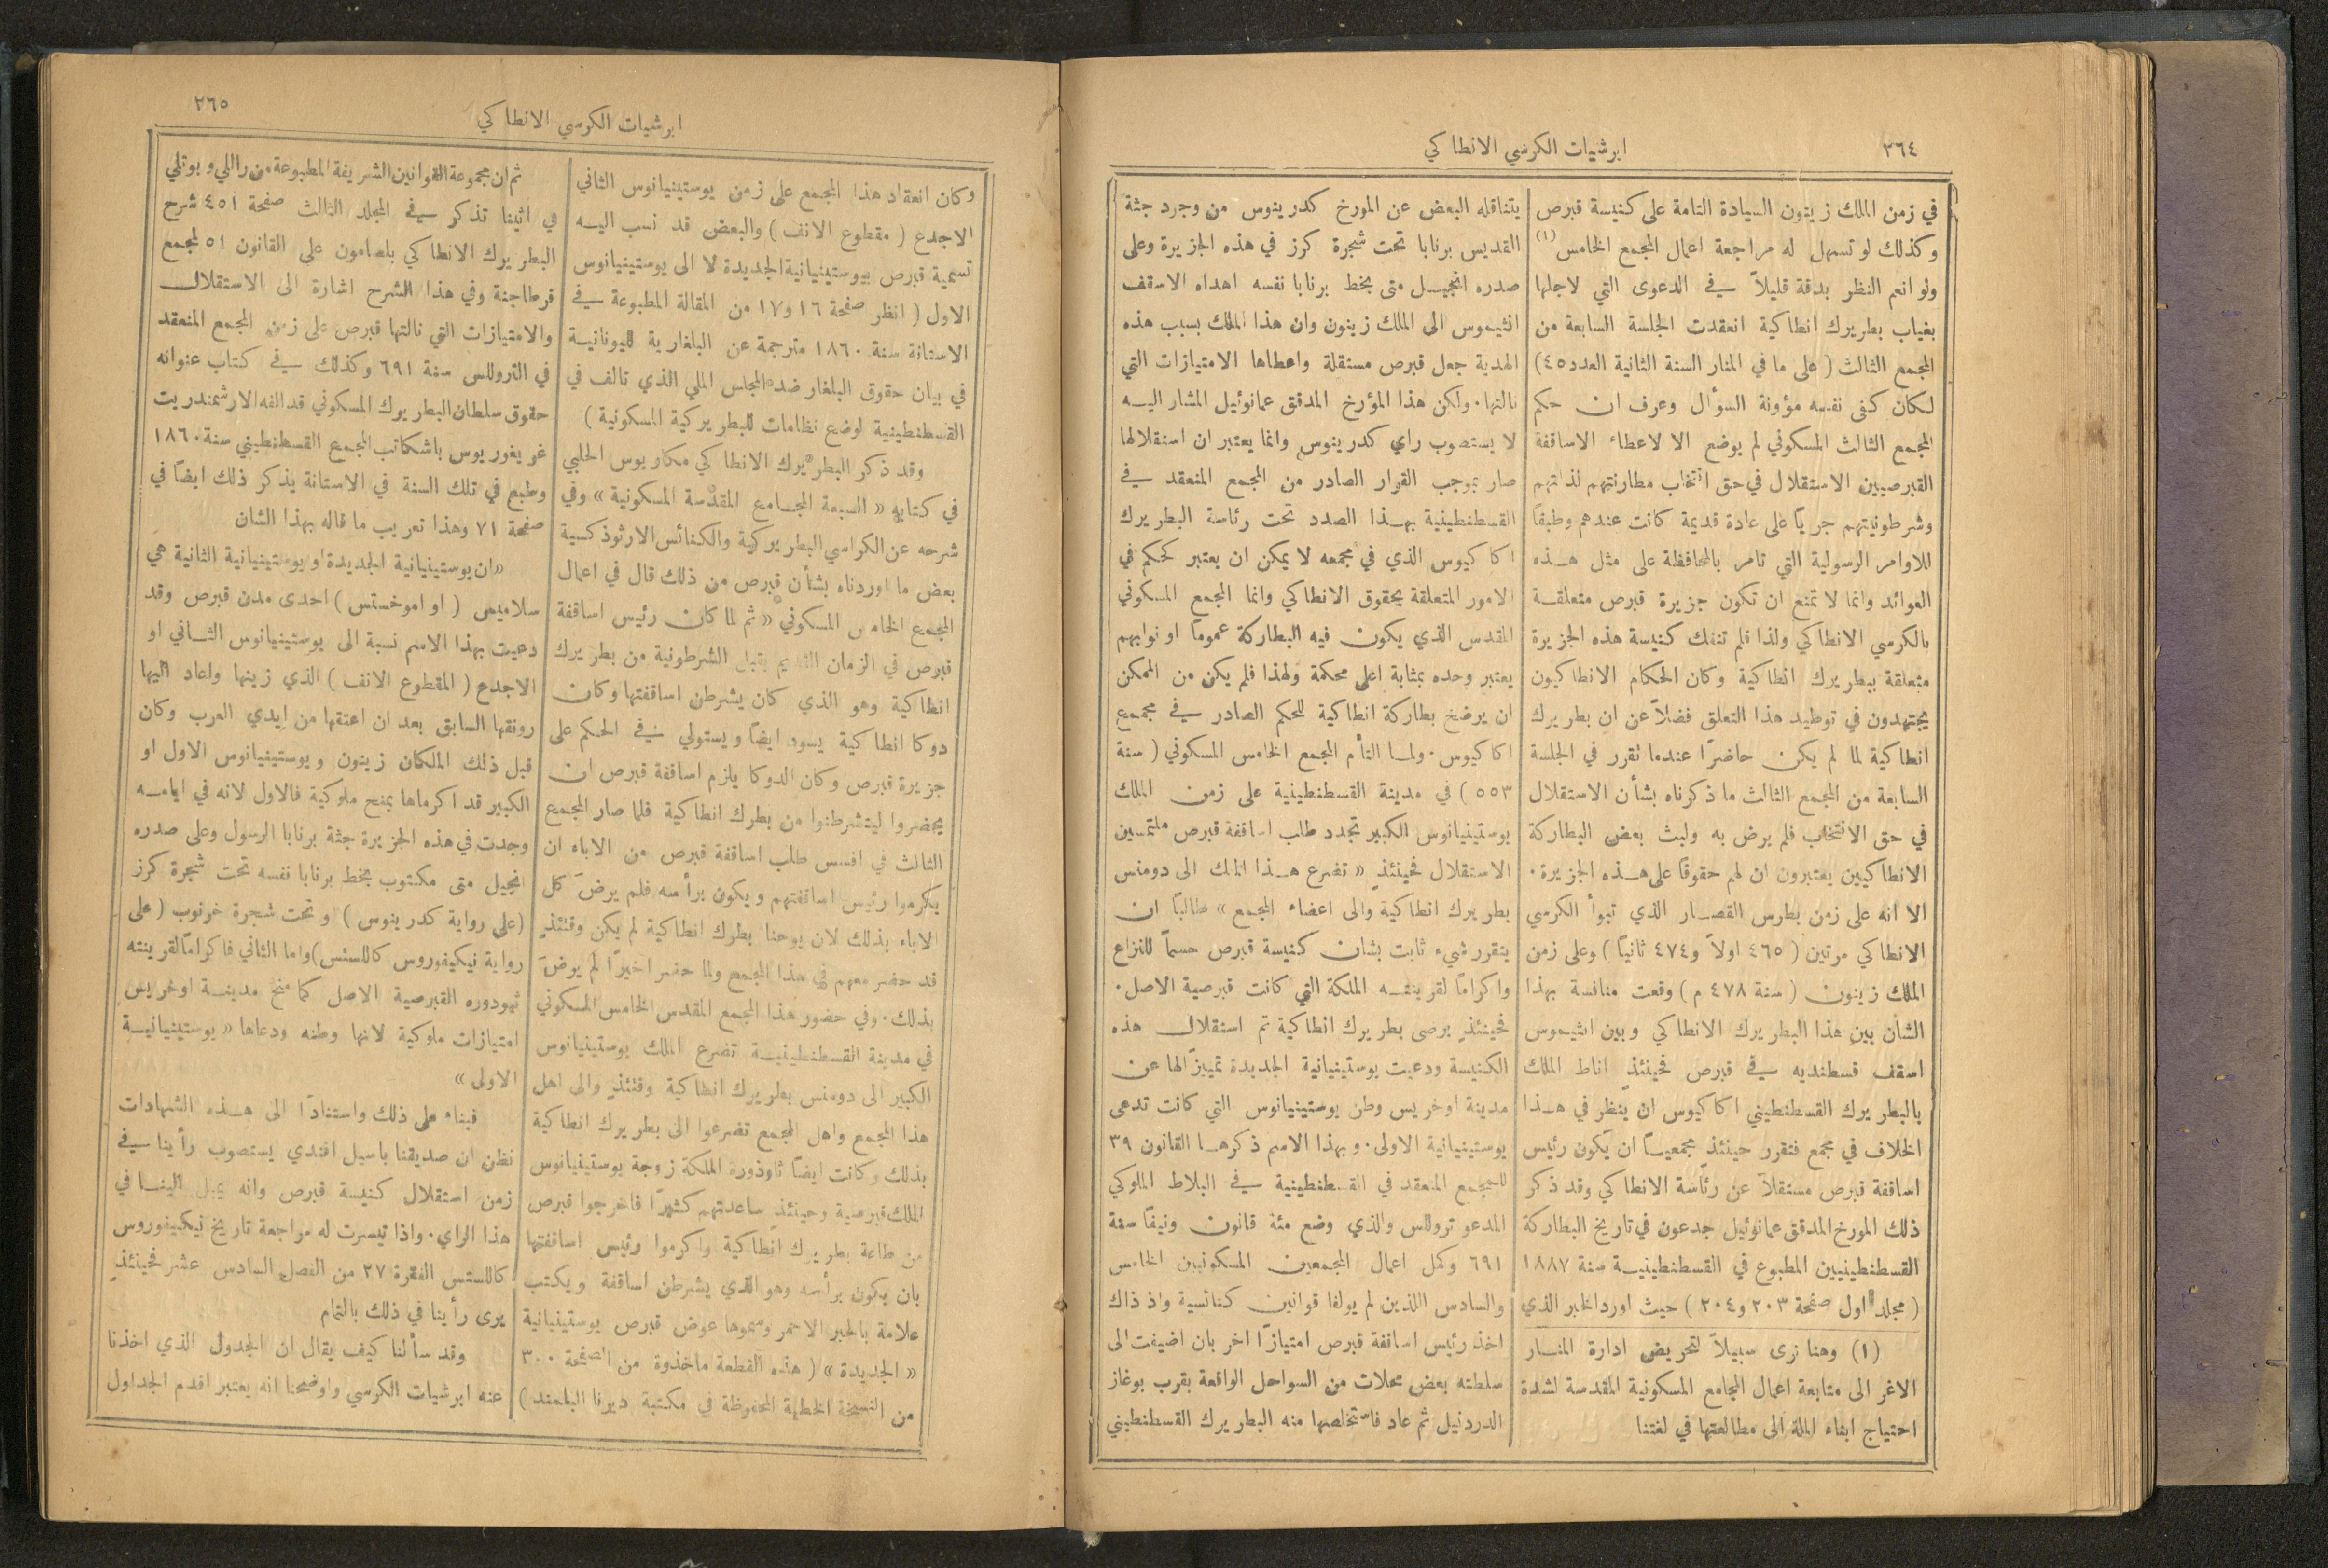 ٣٦٤
ابرشيات الكرسي الانطاكي
في زمن الملك زينون السيادة التامة على كنيسة قبرص
وكذلك لو تسهل له مراجعة اعمال المجمع الخامس (١)
ولو انعم النظر بدقة قليلاً في الدعوى التي لاجلها
بغياب بطريرك انطاكية انعقدت الجلسة السابعة من
المجمع الثالث (على ما في المنار السنة الثانية العدد ٤٥)
لكان كفى نفسه مؤونة السوأل وعرف ان حكم
المجمع الثالث المسكوني لم يوضع الا لاعطاء الاساقفة
القبرصيين الاستقلال في حق انتخاب مطارنتهم لذاتهم
وشرطونيتهم جرياً على عادة قديمة كانت عندهم وطبقاً
للاوامر الرسولية التي تامر بالمحافظة على مثل هذه
العوائد وانما لا تمنع ان تكون جزيرة قبرص متعلقة
بالكرسي الانطاكي ولذا فلم تنفك كنيسة هذه الجزيرة
متعلقة ببطريرك انطاكية وكان الحكام الانطاكيون
يجتهدون في توطيد هذا التعلق فضلاً عن ان بطريرك
انطاكية لما لم يكن حاضرًا عندما تقرر في الجلسة
السابعة من المجمع الثالث ما ذكرناه بشأن الاستقلال
في حق الانتخاب فلم يرض به ولبث بعض البطاركة
الانطاكيين يعتبرون ان لهم حقوقاً على هذه الجزيرة.
الا انه على زمن بطرس القصار الذي تبوأ الكرسي
الانطاكي مرتين (٤٦٥ اولاً و٤٧٤ ثانياً) وعلى زمن
الملك زينون (سنة ٤٧٨ م) وقعت منافسة بهذا
الشأن بين هذا البطريرك الانطاكي وبين انثيموس
اسقف قسطنديه في قبرص فحينئذٍ اناط الملك
بالبطريرك القسطنطيني اكاكيوس ان ينظر في هذا
الخلاف في مجمع فتقرر حينئذٍ مجمعياً ان يكون رئيس
اساقفة قبرص مستقلاً عن رئاسة الانطاكي وقد ذكر
ذلك المورخ المدقق عمانوئيل جدعون في تاريخ البطاركة
القسطنطينيين المطبوع في القسطنطينية سنة ١٨٨٧
(مجلد اول صفحة ٢٠٣ و٢٠٤) حيث اورد الخبر الذي
(١) وهنا نرى سبيلاً لتحريض ادارة المنار
الاغر الى متابعة اعمال المجامع المسكونية المقدسة لشدة
احتياج ابناء الملة الى مطالعتها في لغتنا
يتناقله البعض عن المورخ كدرينوس من وجود جثة
القديس برنابا تحت شجرة كرز في هذه الجزيرة وعلى
صدره انجيل متى بخط برنابا نفسه اهداه الاسقف
انثيموس الى الملك زينون وان هذا الملك بسبب هذه
الهدية جعل قبرص مستقلة واعطاها الامتيازات التي
نالتها. ولكن هذا المؤرخ المدقق عمانوئيل المشار اليه
لا يستصوب راي كدرينوس وانما يعتبر ان استقلالها
صار بموجب القرار الصادر من المجمع المنعقد في
القسطنطينية بهذا الصدد تحت رئاسة البطريرك
اكاكيوس الذي في مجمعه لا يمكن ان يعتبر كحكم في
الامور المتعلقة بحقوق الانطاكي وانما المجمع المسكوني
المقدس الذي يكون فيه البطاركة عموماً او نوابهم
يعتبر وحده بمثابة اعلى محكمة ولهذا فلم يكن من الممكن
ان يرضخ بطاركة انطاكية للحكم الصادر في مجمع
اكاكيوس. ولما التأم المجمع الخامس المسكوني (سنة
٥٥٣) في مدينة القسطنطينية على زمن الملك
يوستينيانوس الكبير تجدد طلب اساقفة قبرص ملتمسين
الاستقلال فحينئذٍ «تضرع هذا الملك الى دومنس
بطريرك انطاكية والى اعضاء المجمع» طالباً ان
يتقرر شيء ثابت بشان كنيسة قبرص حسماً للنزاع
واكراماً لقرينته الملكة التي كانت قبرصية الاصل.
فحينئذٍ برضى بطريرك انطاكية تم استقلال هذه
الكنيسة ودعيت يوستينيانية الجديدة تمييزاً لها عن
مدينة اوخريس وطن يوستينيانوس التي كانت تدعى
يوستينيانية الاولى. وبهذا الاسم ذكرها القانون ٣٩
للمجمع المنعقد في القسطنطينية في البلاط الملوكي
المدعو تروللس والذي وضع مئة قانون ونيفاً سنة
٦٩١ وكمل اعمال المجمعين المسكونيين الخامس
والسادس اللذين لم يولفا قوانين كنائسية واذ ذاك
اخذ رئيس اساقفة قبرص امتيازًا اخر بان اضيفت الى
سلطته بعض محلات من السواحل الواقعة بقرب بوغاز
الدردنيل ثم عاد فاستخلصها منه البطريرك القسطنطيني
٣٦٥
ابرشيات الكرسي الانطاكي
وكان انعقاد هذا المجمع على زمن يوستينيانوس الثاني
الاجدع (مقطوع الانف) والبعض قد نسب اليه
تسمية قبرص بيوستينيانية الجديدة لا الى يوستينيانوس
الاول (انظر صفحة ١٦ و١٧ من المقالة المطبوعة في
الاستانة سنة ١٨٦٠ مترجمة عن البلغارية لليونانية
في بيان حقوق البلغار ضد المجلس الملي الذي تالف في
القسطنطينية لوضع نظامات للبطريركية المسكونية)
وقد ذكر البطريرك الانطاكي مكاريوس الحلبي
في كتابه «السبعة المجامع المقدسة المسكونية» وفي
شرحه عن الكراسي البطريركية والكنائس الارثوذكسية
بعض ما اوردناه بشأن قبرص من ذلك قال في اعمال
المجمع الخامس المسكوني «ثم لما كان رئيس اساقفة
قبرص في الزمان القديم يقبل الشرطونية من بطريرك
انطاكية وهو الذي كان يشرطن اساقفتها وكان
دوكا انطاكية يسود ايضاً ويستولي في الحكم على
جزيرة قبرص وكان الدوكا يلزم اساقفة قبرص ان
يحضروا ليتشرطنوا من بطرك انطاكية فلما صار المجمع
الثالث في افسس طلب اساقفة قبرص من الاباء ان
يكرموا رئيس اساقفتهم ويكون برأسه فلم يرضَ كل
الاباء بذلك لان يوحنا بطرك انطاكية لم يكن وقتئذٍ
قد حضر معهم في هذا المجمع ولما حضر اخيرًا لم يرضَ
بذلك. وفي حضور هذا المجمع المقدس الخامس المسكوني
في مدينة القسطنطينية تضرع الملك يوستينيانوس
الكبير الى دومنس بطريرك انطاكية وقتئذٍ والى اهل
هذا المجمع واهل المجمع تضرعوا الى بطريرك انطاكية
بذلك وكانت ايضاً ثاوذورة الملكة زوجة يوستينيانوس
الملك قبرصية وحينئذٍ ساعدتهم كثيرًا فاخرجوا قبرص
من طاعة بطريرك انطاكية واكرموا رئيس اساقفتها
بان يكون برأسه وهو الذي يشرطن اساقفة ويكتب
علامة بالحبر الاحمر وسموها عوض قبرص يوستينيانية
«الجديدة» (هذه القطعة ماخذوة من الصفحة ٣٠٠
من النسخة الخطية المحفوظة في مكتبة ديرنا البلمند)
ثم ان مجموعة القوانين الشريفة المطبوعة من راللي وبوتلي
في اثينا تذكر في المجلد الثالث صفحة ٤٥١ شرح
البطريرك الانطاكي بلصامون على القانون ٥١ لمجمع
قرطاجنة وفي هذا الشرح اشارة الى الاستقلال
والامتيازات التي نالتها قبرص على زمن المجمع المنعقد
في التروللس سنة ٦٩١ وكذلك في كتاب عنوانه
حقوق سلطان البطريرك المسكوني قد الفه الارشمندريت
غريغوريوس باشكاتب المجمع القسطنطيني سنة ١٨٦٠
وطبع في تلك السنة في الاستانة يذكر ذلك ايضاً في
صفحة ٧١ وهذا تعريب ما قاله بهذا الشان
«ان يوستينيانية الجديدة او يوستينيانية الثانية هي
سلاميس (او اموخستس) احدى مدن قبرص وقد
دعيت بهذا الاسم نسبة الى يوستينيانوس الثاني او
الاجدع (المقطوع الانف) الذي زينها واعاد اليها
رونقها السابق بعد ان اعتقها من ايدي العرب وكان
قبل ذلك الملكان زينون ويوستينيانوس الاول او
الكبير قد اكرماها بمنح ملوكية فالاول لانه في ايامه
وجدت في هذه الجزيرة جثة برنابا الرسول وعلى صدره
انجيل متى مكتوب بخط برنابا نفسه تحت شجرة كرز
(على رواية كدرينوس) او تحت شجرة خرنوب (على
رواية نيكيفوروس كاللستس) واما الثاني فاكراماً لقرينته
ثيودوره القبرصية الاصل كما منح مدينة اوخريس
امتيازات ملوكية لانها وطنه ودعاها «يوستينيانية
الاولى»
فبناء على ذلك واستنادًا الى هذه الشهادات
نظن ان صديقنا باسيل افندي يستصوب رأينا في
زمن استقلال كنيسة قبرص وانه يميل الينا في
هذا الراي. واذا تيسرت له مراجعة تاريخ نيكيفوروس
كاللستس الفقرة ٢٧ من الفصل السادس عشر فحينئذٍ
يرى رأينا في ذلك بالتمام
وقد سألنا كيف يقال ان الجدول الذي اخذنا
عنه ابرشيات الكرسي واوضحنا انه يعتبر اقدم الجداول